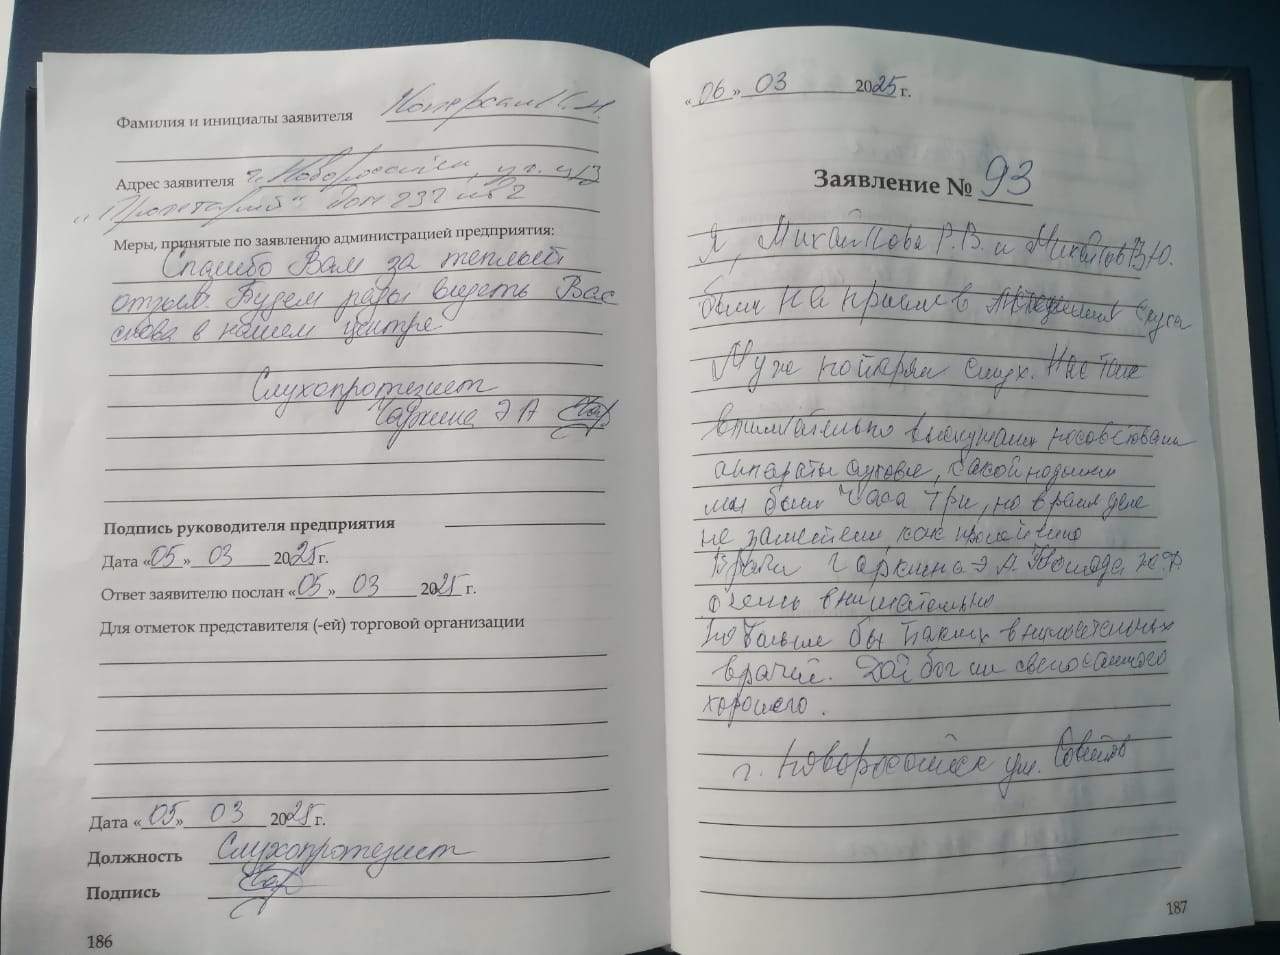 Фамилия и инициалы заявителя
Адрес заявителя г. Новороссийск,
"Пролетарий" дом 237 кв 2
Меры, принятые по заявлению администрацией предприятия:
Спасибо Вам за теплый
отзыв. Будем рады видеть Вас
снова в нашем центре
Слухопротезист
Чаркина Э А
Подпись руководителя предприятия
Дата «05» 03 2025г.
Ответ заявителю послан «05» 03 2025 г.
Для отметок представителя (-ей) торговой организации
Дата «05» 03 2025г.
Должность Слухопротезист
Подпись
186
«06» 03 2025 г.
Заявление № 93
Я, Михайлова Р.В. и Михайлов В.Ю.
были на приеме в Слуха
Муж потерял слух. Нас так
внимательно выслушали посоветовали
аппараты слуховые, какой
мы были часа три, но время даже
не заметили, как прошло
Врачи Чаркина Э А.
очень внимательно
побольше бы таких внимательных
врачей. Дай бог им самого
хорошего.
г. Новороссийск ул. Советов
187